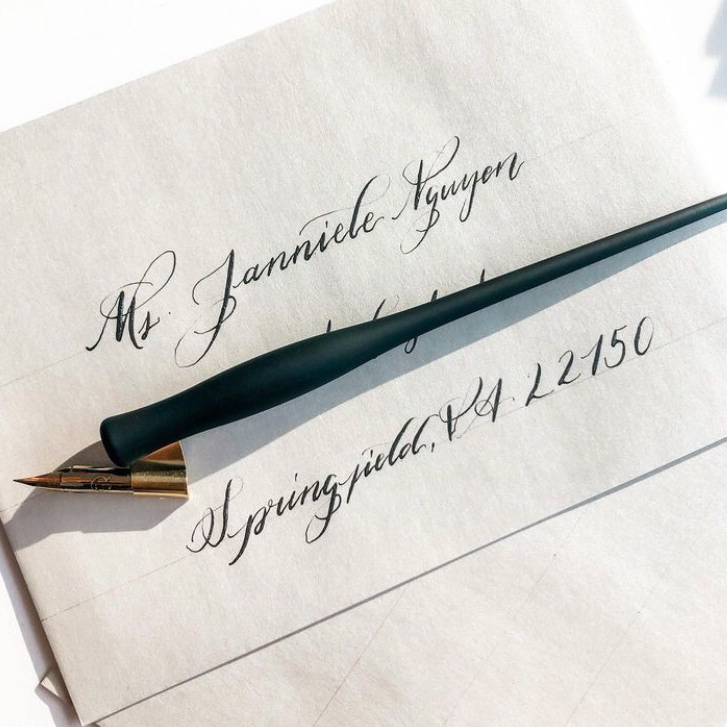 Ms. Janniele Nguyen
Springfield, VA 22150